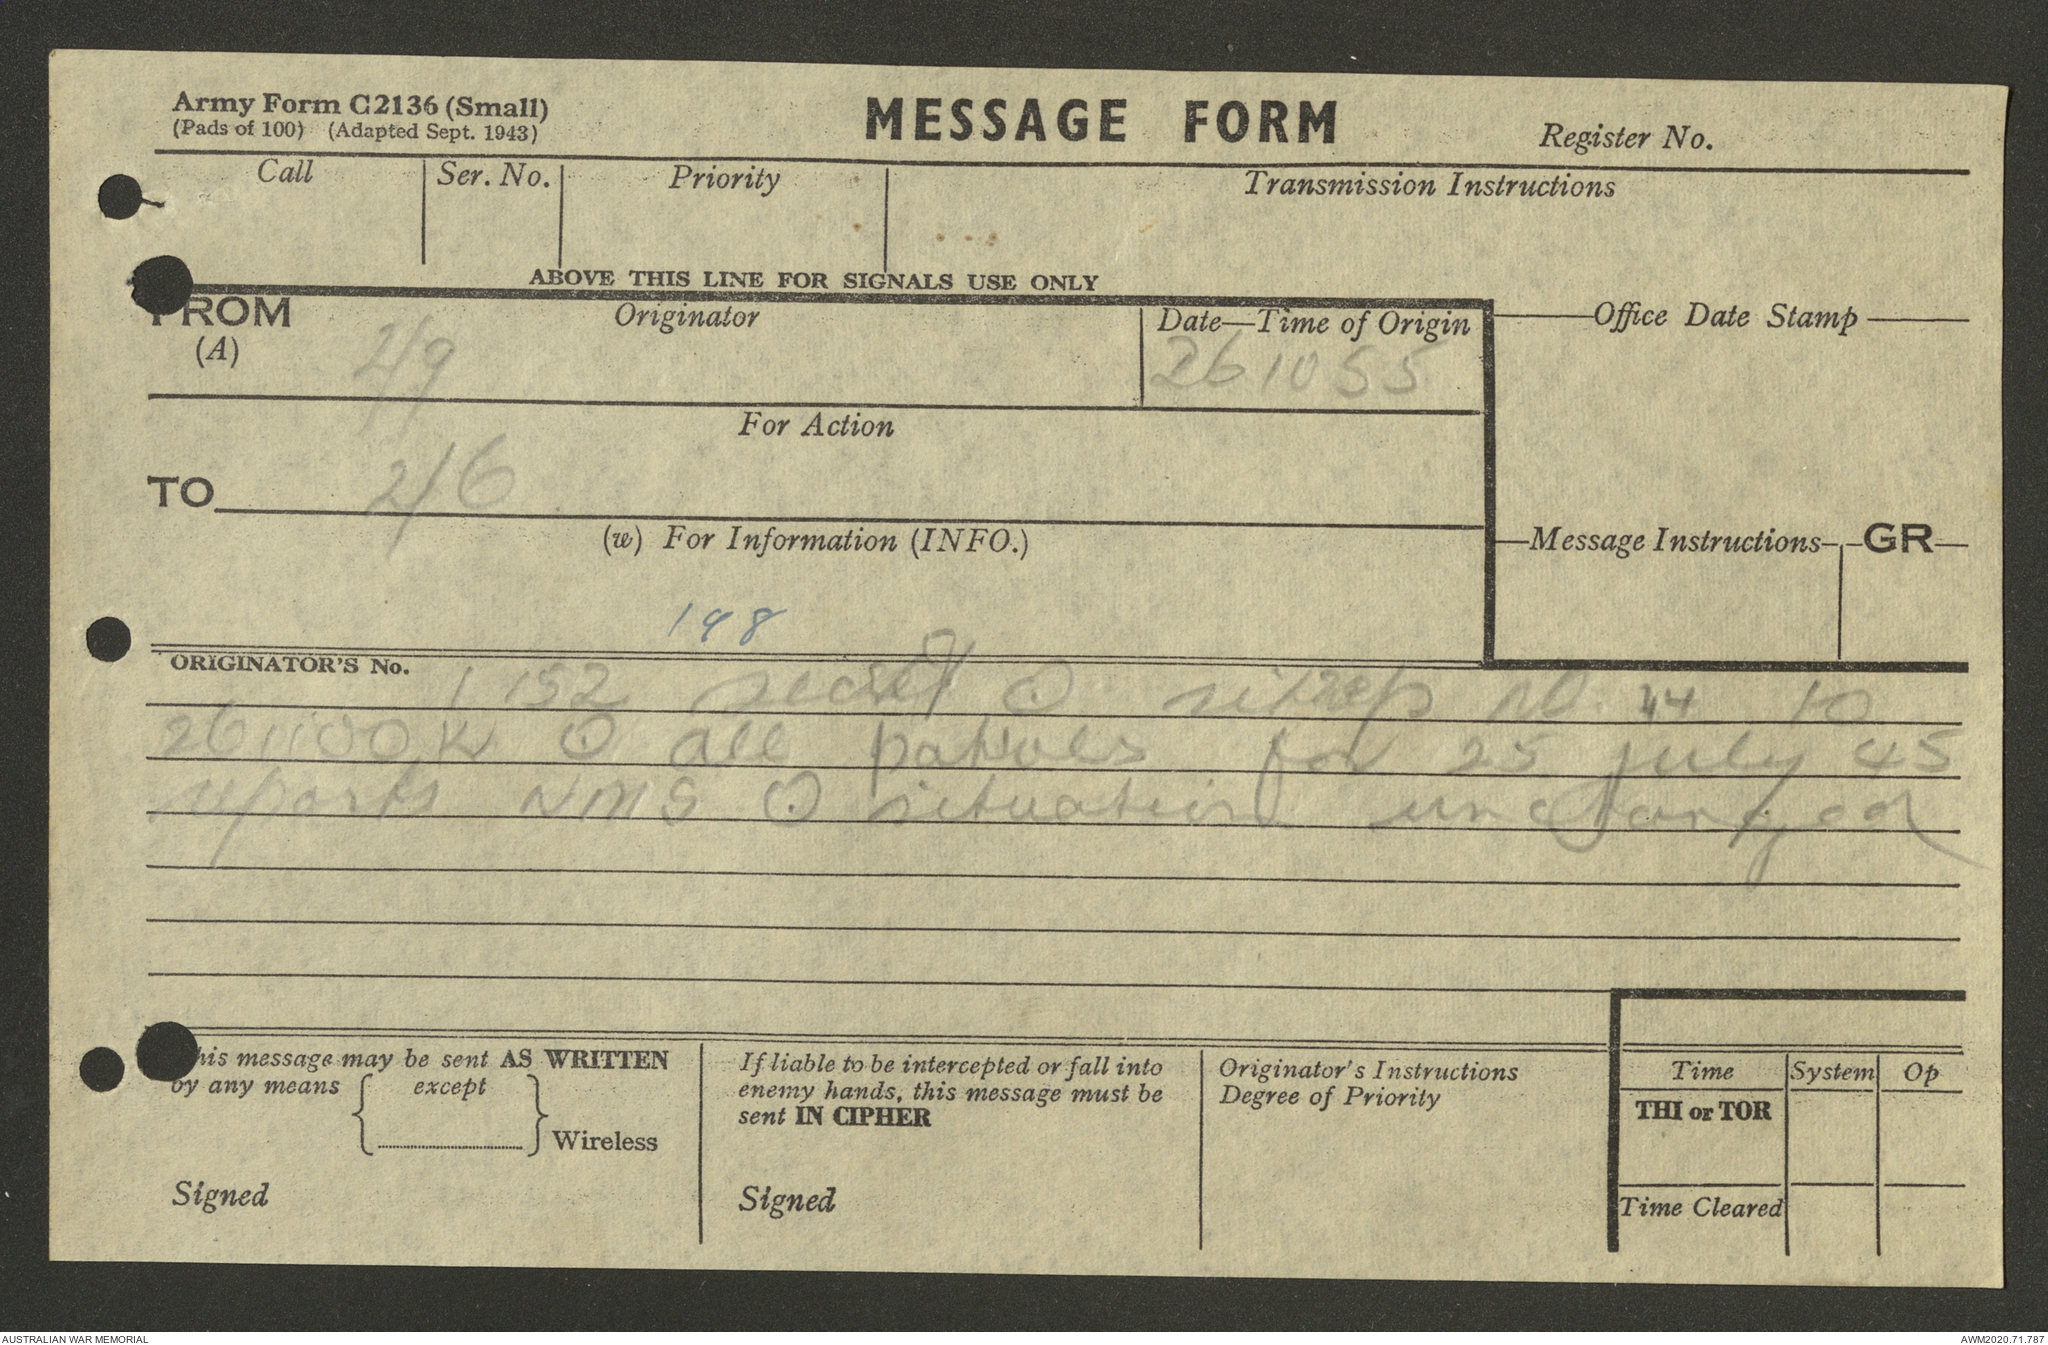 Army Form C2136 (Small)
(Pads of 100) (Adapted Sept. 1943)
MESSAGE FORM
Register No.
Call
Ser. No.
Priority
Transmission Instructions
ABOVE THIS LINE FOR SIGNALS USE ONLY
FROM
(A)
Originator
2/9
Date—Time of Origin
261055
Office Date Stamp
For Action
TO
2/6
(w) For Information (INFO.)
Message Instructions
GR
198
ORIGINATOR'S No.
1152 secret O sitrep no. 44 to
261100K O all patrols for 25 july 45
reports NMS O situation unchanged
This message may be sent AS WRITTEN
by any means { except } Wireless
Signed
If liable to be intercepted or fall into
enemy hands, this message must be
sent IN CIPHER
Signed
Originator's Instructions
Degree of Priority
Time
System
Op
THI or TOR
Time Cleared
AUSTRALIAN WAR MEMORIAL
AWM2020.71.787